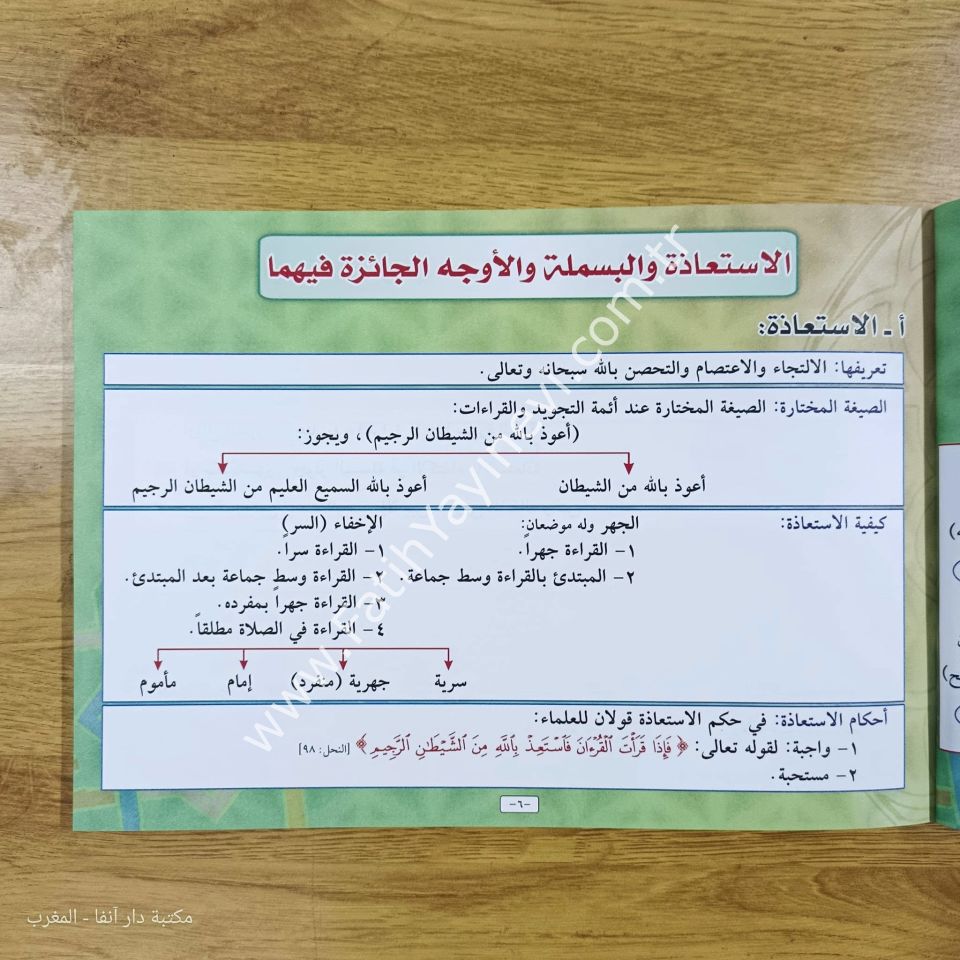 الاستعاذة والبسملة والأوجه الجائزة فيهما
أ ـ الاستعاذة:
تعريفها: الالتجاء والاعتصام والتحصن بالله سبحانه وتعالى.
الصيغة المختارة: الصيغة المختارة عند أئمة التجويد والقراءات:
(أعوذ بالله من الشيطان الرجيم)، ويجوز:
أعوذ بالله من الشيطان
أعوذ بالله السميع العليم من الشيطان الرجيم
كيفية الاستعاذة:
الجهر وله موضعان:
١- القراءة جهراً.
٢- المبتدئ بالقراءة وسط جماعة.
الإخفاء (السر)
١- القراءة سراً.
٢- القراءة وسط جماعة بعد المبتدئ.
٣- القراءة جهراً بمفرده.
٤- القراءة في الصلاة مطلقاً.
سرية
جهرية (منفرد)
إمام
مأموم
أحكام الاستعاذة: في حكم الاستعاذة قولان للعلماء:
١- واجبة: لقوله تعالى: ﴿ فَإِذَا قَرَأْتَ الْقُرْءَانَ فَاسْتَعِذْ بِاللَّهِ مِنَ الشَّيْطَٰنِ الرَّجِيمِ ﴾ [النحل: ٩٨]
٢- مستحبة.
-٦-
www.FatihYayinevi.com.tr
مكتبة دار آنفا - المغرب